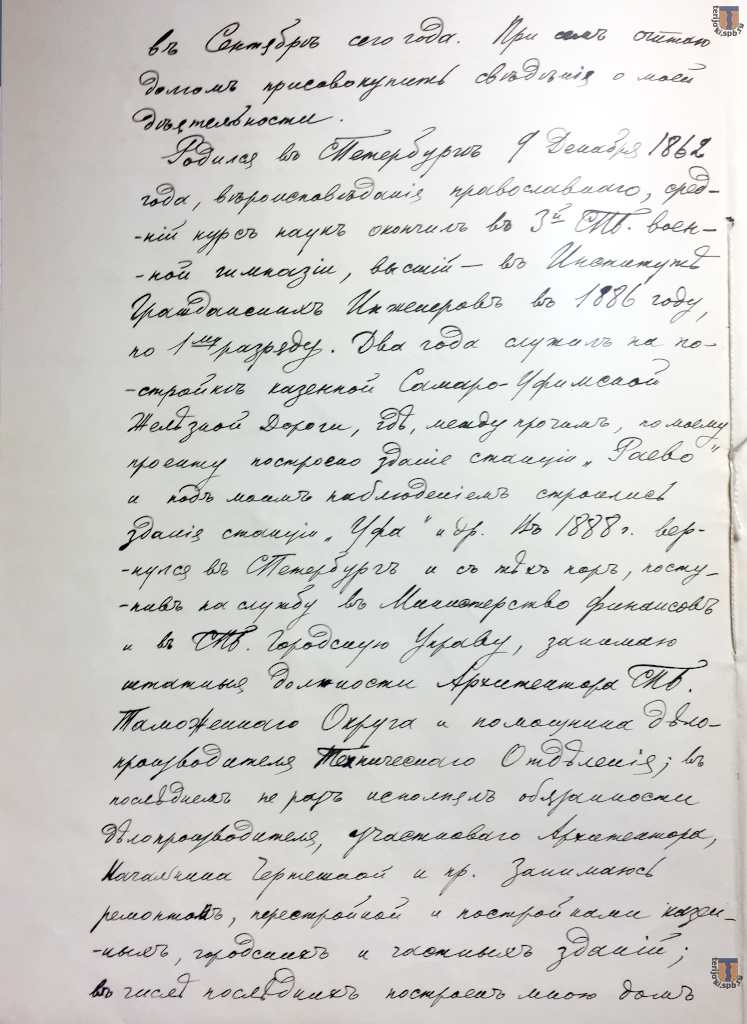 въ Сентябрѣ сего года. При семъ считаю
долгомъ присовокупить свѣдѣнія о моей
дѣятельности.
Родился въ СПетербургѣ 9 Декабря 1862
года, вѣроисповѣданія православнаго, сред-
-ній курсъ наукъ окончилъ въ 3й СПБ. воен-
-ной гимназіи, высшій — въ Институтѣ
Гражданскихъ Инженеровъ въ 1886 году,
по 1му разряду. Два года служилъ на по-
-стройкѣ казенной Самаро-Уфимской
Желѣзной Дороги, гдѣ, между прочимъ, по моему
проекту построено зданіе станціи „Раево"
и подъ моимъ наблюденіемъ строились
зданія станціи „Уфа" и др. Въ 1888 г. вер-
-нулся въ СПетербургъ и съ тѣхъ поръ, посту-
-пивъ на службу въ Министерство Финансовъ
и въ СПБ. Городскую Управу, занимаю
штатныя должности Архитектора СПБ.
Таможеннаго Округа и помощника дѣло-
производителя Техническаго Отдѣленія; въ
послѣднемъ не разъ исполнялъ обязанности
дѣлопроизводителя, участковаго Архитектора,
Начальника Чертежной и пр. Занимаюсь
ремонтомъ, перестройкой и постройками казен-
-ныхъ, городскихъ и частныхъ зданій;
въ числѣ послѣднихъ построенъ мною домъ
terijoki.spb.ru
terijoki.spb.ru